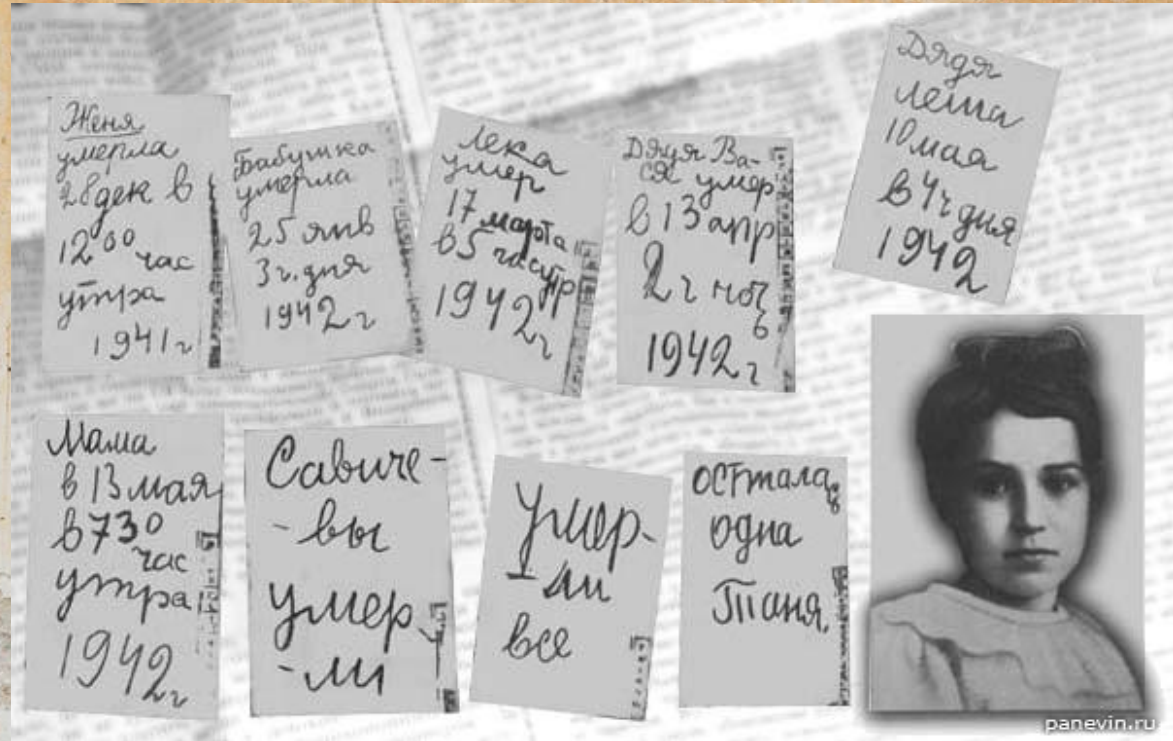 Женя
умерла
28 дек в
12⁰⁰ час
утра
1941 г
Бабушка
умерла
25 янв
3 ч. дня
1942 г
Лека
умер
17 марта
в 5 час утр
1942 г
Дядя Ва-
ся умер
в 13 апр
2 ч ноч
ь
1942 г
Дядя
Леша
10 мая
в 4 ч дня
1942
Мама
в 13 мая
в 7 30
час
утра
1942 г
Савиче-
-вы
умер
-ли
Умер-
-ли
все
Осттала
одна
Таня.
panevin.ru